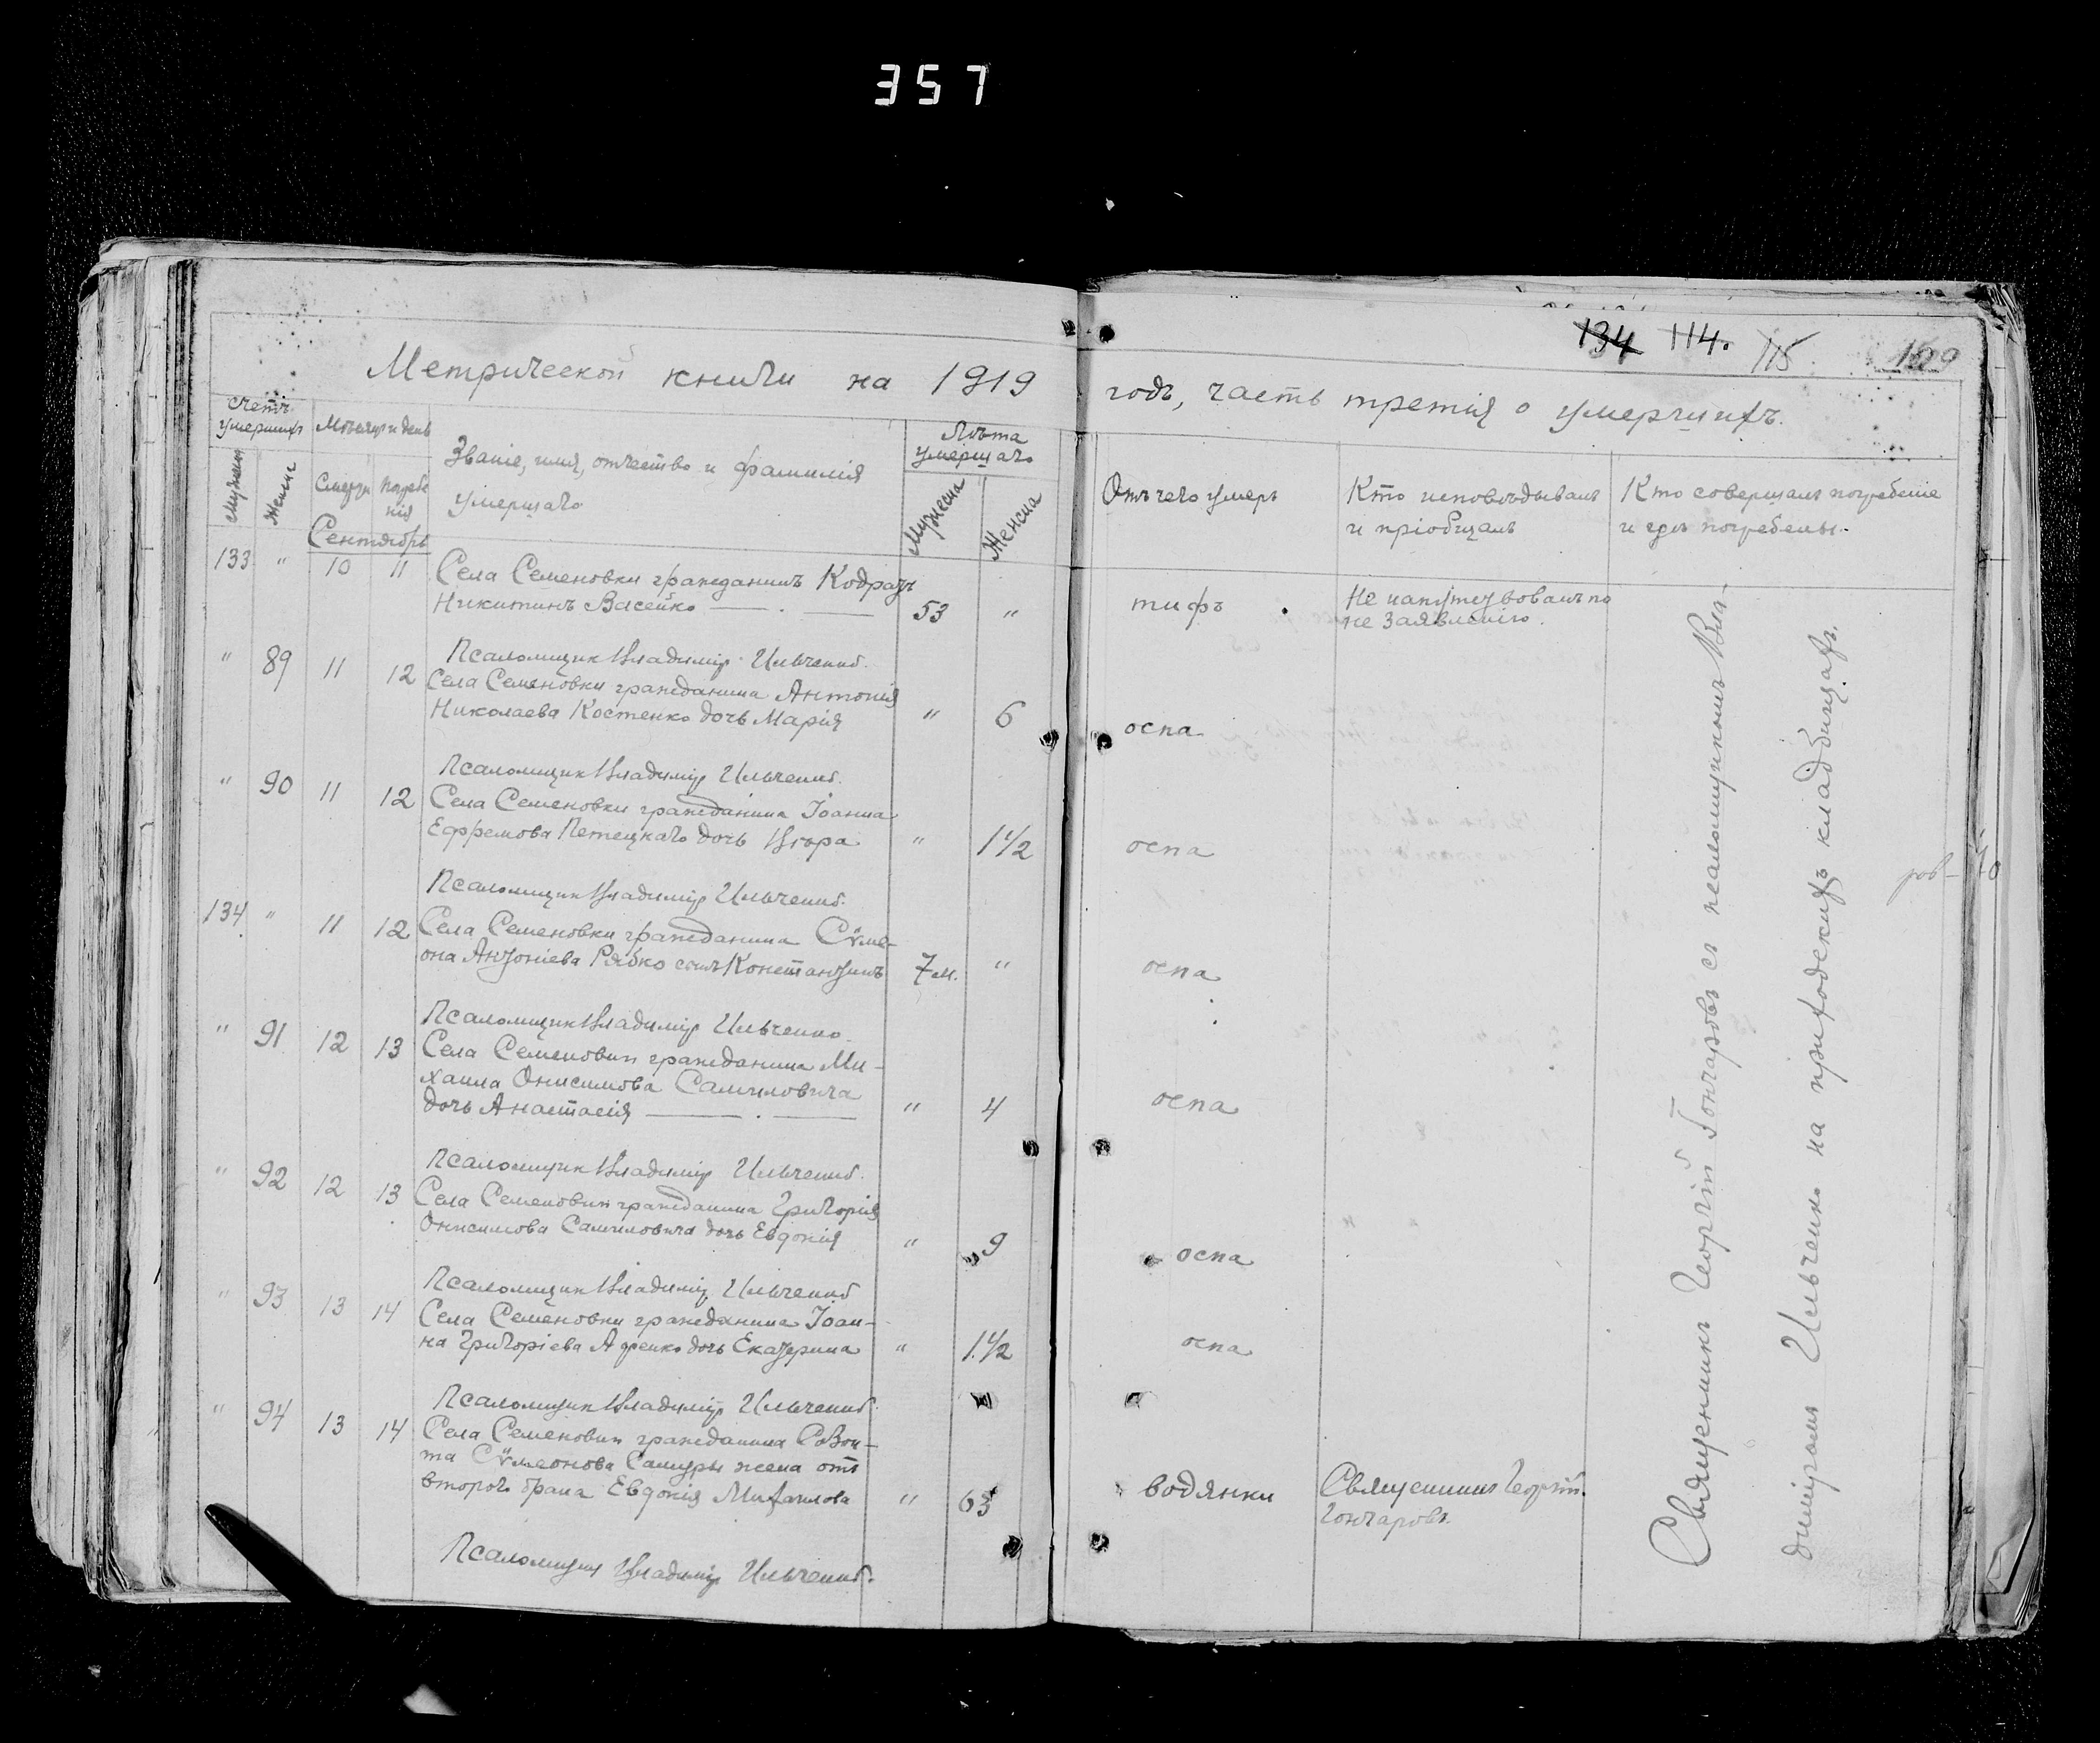 357
134 114. 115 129
Метрической книги на 1919
годъ, часть третія о умершихъ.
Счетъ умершихъ
Мужеск
Женск
Мѣсяцъ и день
Смерти
Погребенія
Сентябрь
Званіе, имя, отчество и фамилія
умершаго
Лѣта
умершаго
Мужеска
Женска
Отъ чего умеръ
Кто исповѣдывалъ
и пріобщалъ
Кто совершалъ погребеніе
и гдѣ погребены.
133 " 10 11 Села Семеновки гражданинъ Кодратъ
Никитинъ Васейко 53 " тифъ Не напутствованъ по
не заявленію.
Псаломщик Владимір Ильченко.
" 89 11 12 Села Семеновки гражданина Антонія
Николаева Костенко дочь Марія " 6 оспа
Псаломщик Владимір Ильченко.
" 90 11 12 Села Семеновки гражданина Іоанна
Ефремова дочь " 1 1/2 оспа
Псаломщик Владимір Ильченко.
134 " 11 12 Села Семеновки гражданина Сѵме-
она Антоніева Рябко сынъ Константинъ 7 м. " оспа
Псаломщик Владимір Ильченко.
" 91 12 13 Села Семеновки гражданина Ми-
хаила Онисимова Самиловича
дочь Анастасія " 4 оспа
Псаломщик Владимір Ильченко.
" 92 12 13 Села Семеновки гражданина Григорія
Онисимова Самиловича дочь Евдокія " 9 оспа
Псаломщик Владимір Ильченко
" 93 13 14 Села Семеновки гражданина Іоан-
на Григоріева дочь Екатерина " 1 1/2 оспа
Псаломщик Владимір Ильченко.
" 94 13 14 Села Семеновки гражданина Созон-
та Сѵмеонова жена отъ
второго брака Евдокія Михаилова " 63 водянки Священникъ Георгій
Гончаровъ.
Псаломщик Владимір Ильченко.
Священникъ Георгій Гончаровъ съ псаломщикомъ Вла-
диміромъ Ильченко на приходскихъ кладбищахъ.